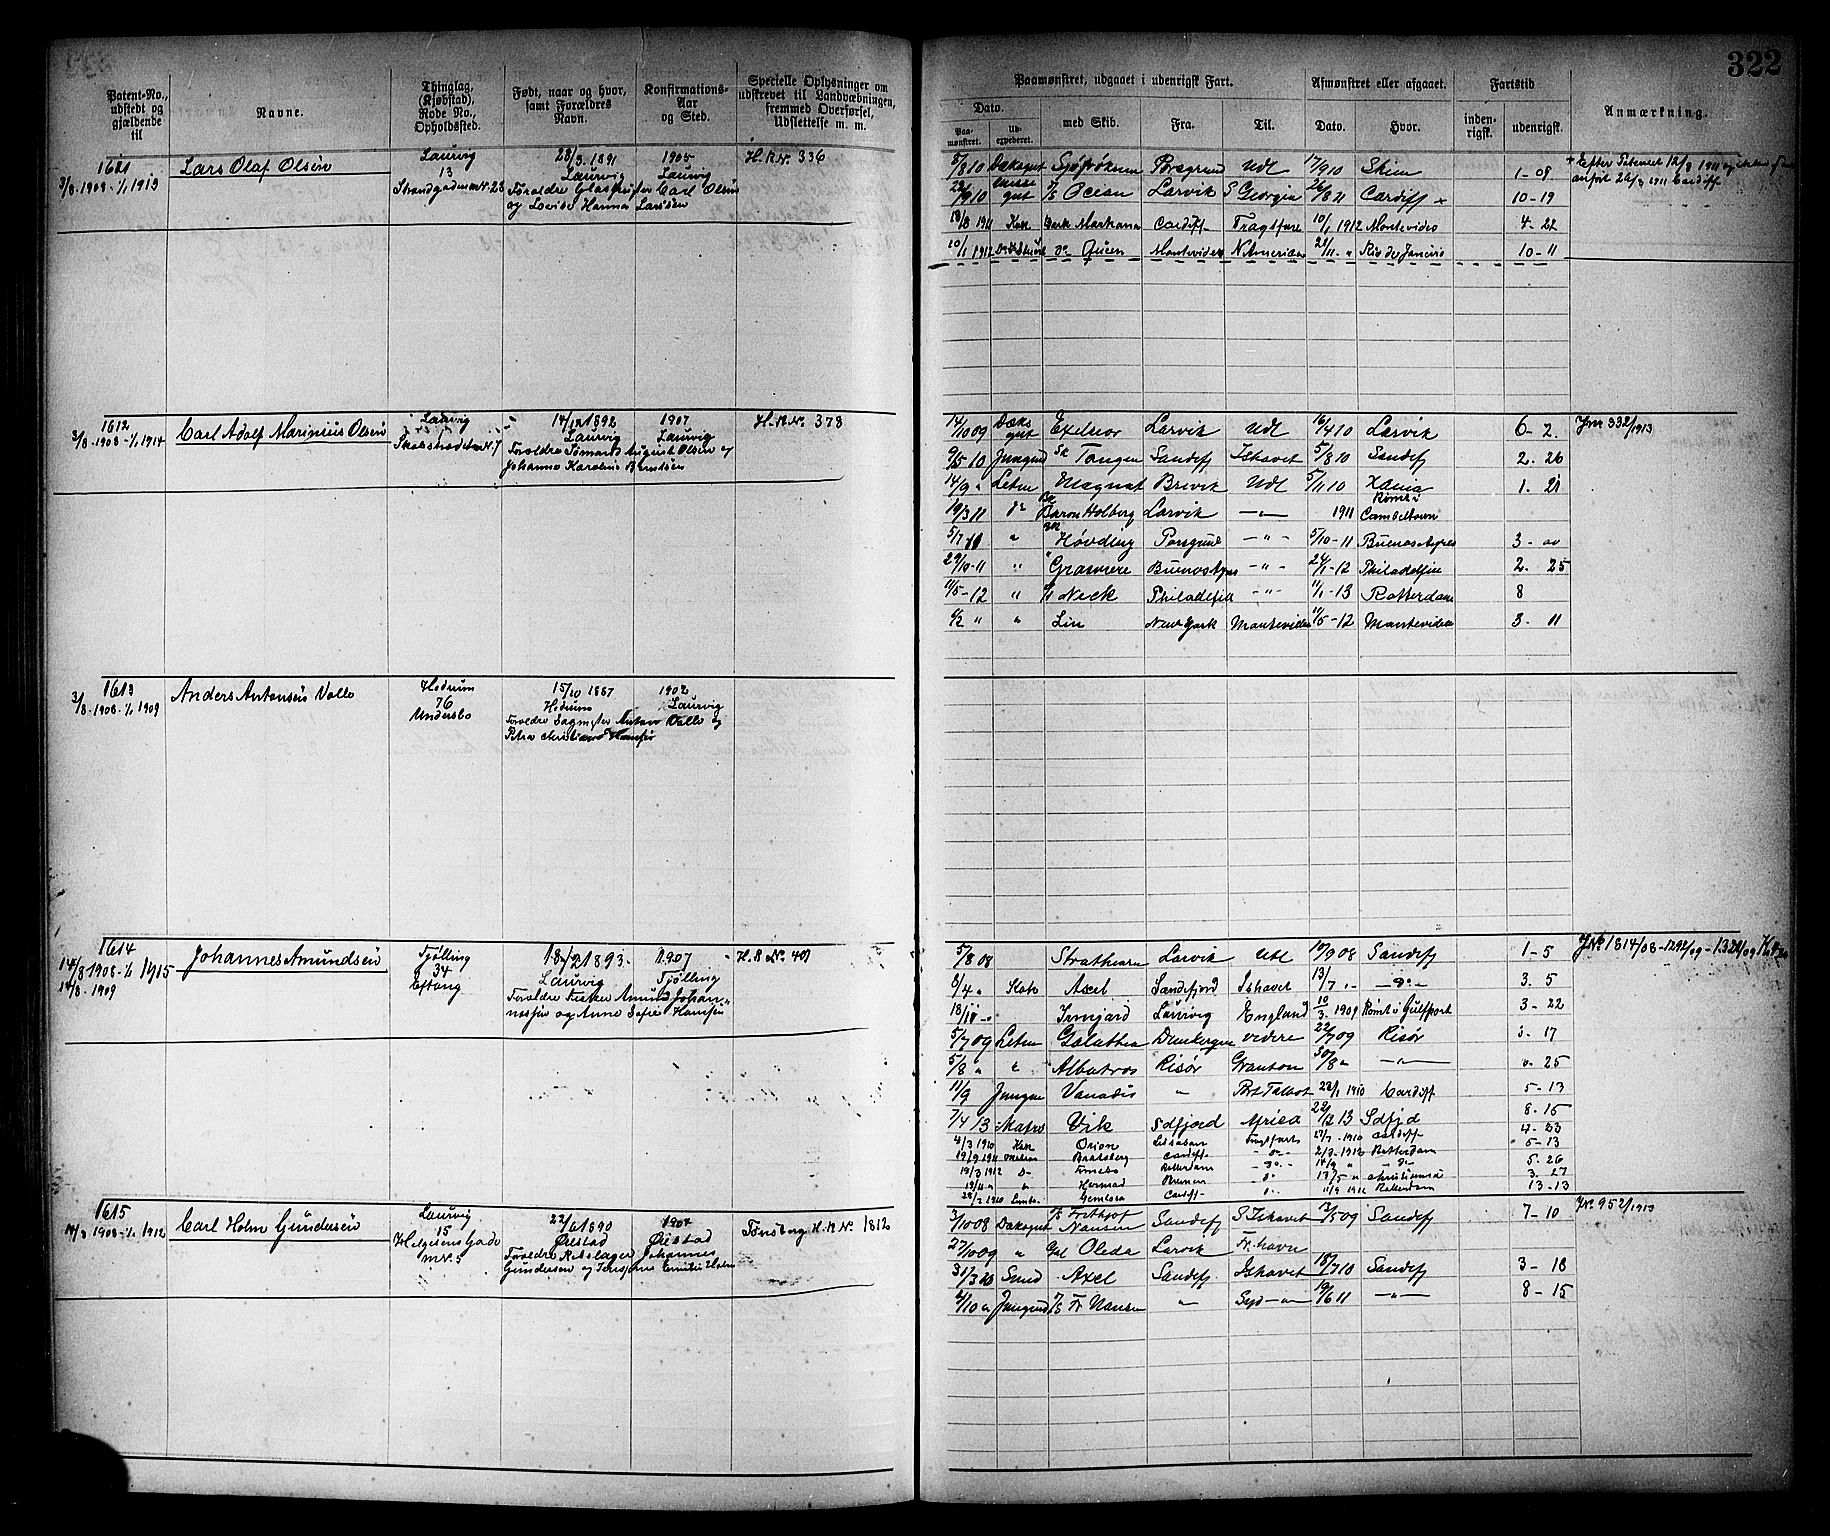 322
Patent-No., udstedt og gjældende til
Navne.
Thinglag, (Kjøbstad), Rode No., Opholdssted.
Født, naar og hvor, samt Forældres Navn.
Konfirmations-Aar og Sted.
Specielle Oplysninger om udskrevet til Landværbningen, fremmed Overførsel, Udslettelse m. m.
Paamønstret, udgaaet i udenrigsk Fart.
Afmønstret eller afgaaet.
Fartstid
Anmærkning.
Dato.
Paamønstret.
Udexpederet.
med Skib.
Fra.
Til.
Dato.
Hvor.
indenrigsk.
udenrigsk.
1611
3/8 1908 - 1/1 1913
Lars Olaf Olsen
Laurvig
13
Strandgaden Nr. 23
28/3. 1891
Laurvig
1905
Laurvig
og Lovise Hanna Larssen
H.R.Nr. 336
5/8 10 Porsgrund Udl 17/9 10 Skien 1-09
22/9 10 Ocean Larvik S Georgia 26/8 11 Cardiff 10-19
18/8 1911 Kok Bark Cardiff Fragtfart 10/1 1912 Montevideo 4-22
10/1 1912 Queen Montevideo N Amerika 21/11 " Rio de Janeiro 10-11
1612
3/8 1908 - 1/1 1914
Carl Adolf Marinius Olsen
Laurvig
14/12 1892
Laurvig
1907
Laurvig
Forældre Sømand August Olsen og
Johanne Karoline Berntsen
H.R.Nr. 378
14/10 09 Dæksgut Exelsior Larvik Udl 16/4 10 Larvik 6-2.
Jnr 332/1913
9/5 10 Jungmd Sk Tangen Sandefj Ishavet 5/8 10 Sandefj 2. 26
14/9 " Letm Magnat Brevik Udl 5/11 10 Xania 1. 21
19/3 11 Do Baron Holberg Larvik 1911 Rømt i Cambeltown
5/7 11 " Høvding Porsgrund - " - 5/10-11 Buenos Ayres 3-00
29/10-11 " Grasmere Buenos Ayres - " - 24/1-12 Philadelfia 2. 25
11/5-12 " Neck Philadelfia - " - 11/1-13 Rotterdam 8
6/2 " " Lin New York Montevideo 11/5-12 Montevideo 3. 11
1613
3/8 1908 - 1/1 1909
Anders Antonsen Valle
Hedrum
76
Undersbo
15/10 1887
Hedrum
1902
Laurvig
Forældre Sagmester Anton Valle og
Petra Christiane Hansen
1614
14/8 1908 - 1/1 1915
14/8 - 1909
Johannes Amundsen
Tjølling
34
Eftang
18/12 1893
Laurvig
1907
Tjølling
Forældre Fisker Amund Johannessen og Anne Sofie Hansen
H.R No. 401
5/8 08 Strathearn Larvik Udl 10/9 08 Sandefj 1-5
6/4 " Kok Axel Sandefjord Ishavet 13/7 " - Do - 3. 5
18/11 - " Irmgard Laurvig England 10/3 1909 Rømt i Gulfport 3-22
5/7 09 Letm Galathea Dunkerque videre 22/7 09 Risør 17
5/8 " " Albatros Risør Granton 30/8 " - " - 0-25
11/9 Jungm Vanadis " Port Talbot 23/1 1910 Cardiff 5-13
7/4 13 Matros Vik Sdfjord Africa 22/12 13 Sdfjd 8-15
4/3 1910 Kok Orion Fragtfart 1910 Cardiff
19/9 1911 Cardiff 2/3 1912 Rotterdam 5-13
19/3 1912 Do Rotterdam 5-26
Bremen Christiania 3. 27
Cardiff 11/9 1912 Rotterdam 13-13
1615
14/8 1908 - 1/1 1912
Carl Holm Gundersen
Laurvig
15
Helgesens Gade
nr. 5
22/6 1890
Øiestad
1904
Øiestad
Forældre Rebslager Johannes
Gundersen og Emilie Holm
Tønsberg H.R.Nr. 1812
3/10 08 Dæksgut Frithjof Nansen Sandefj S Ishavet 3/5 09 Sandefj 7-10
Jnr. 952/1913
27/10 09 " Gal Oleda Larvik Fr.havn
31/3 10 Smd Axel Sandefj Ishavet 18/7 10 Sandefj 3-18
2/10 " Jungmd Fr Nansen - " - Syd - " - 19/6 11 - " - 8-15